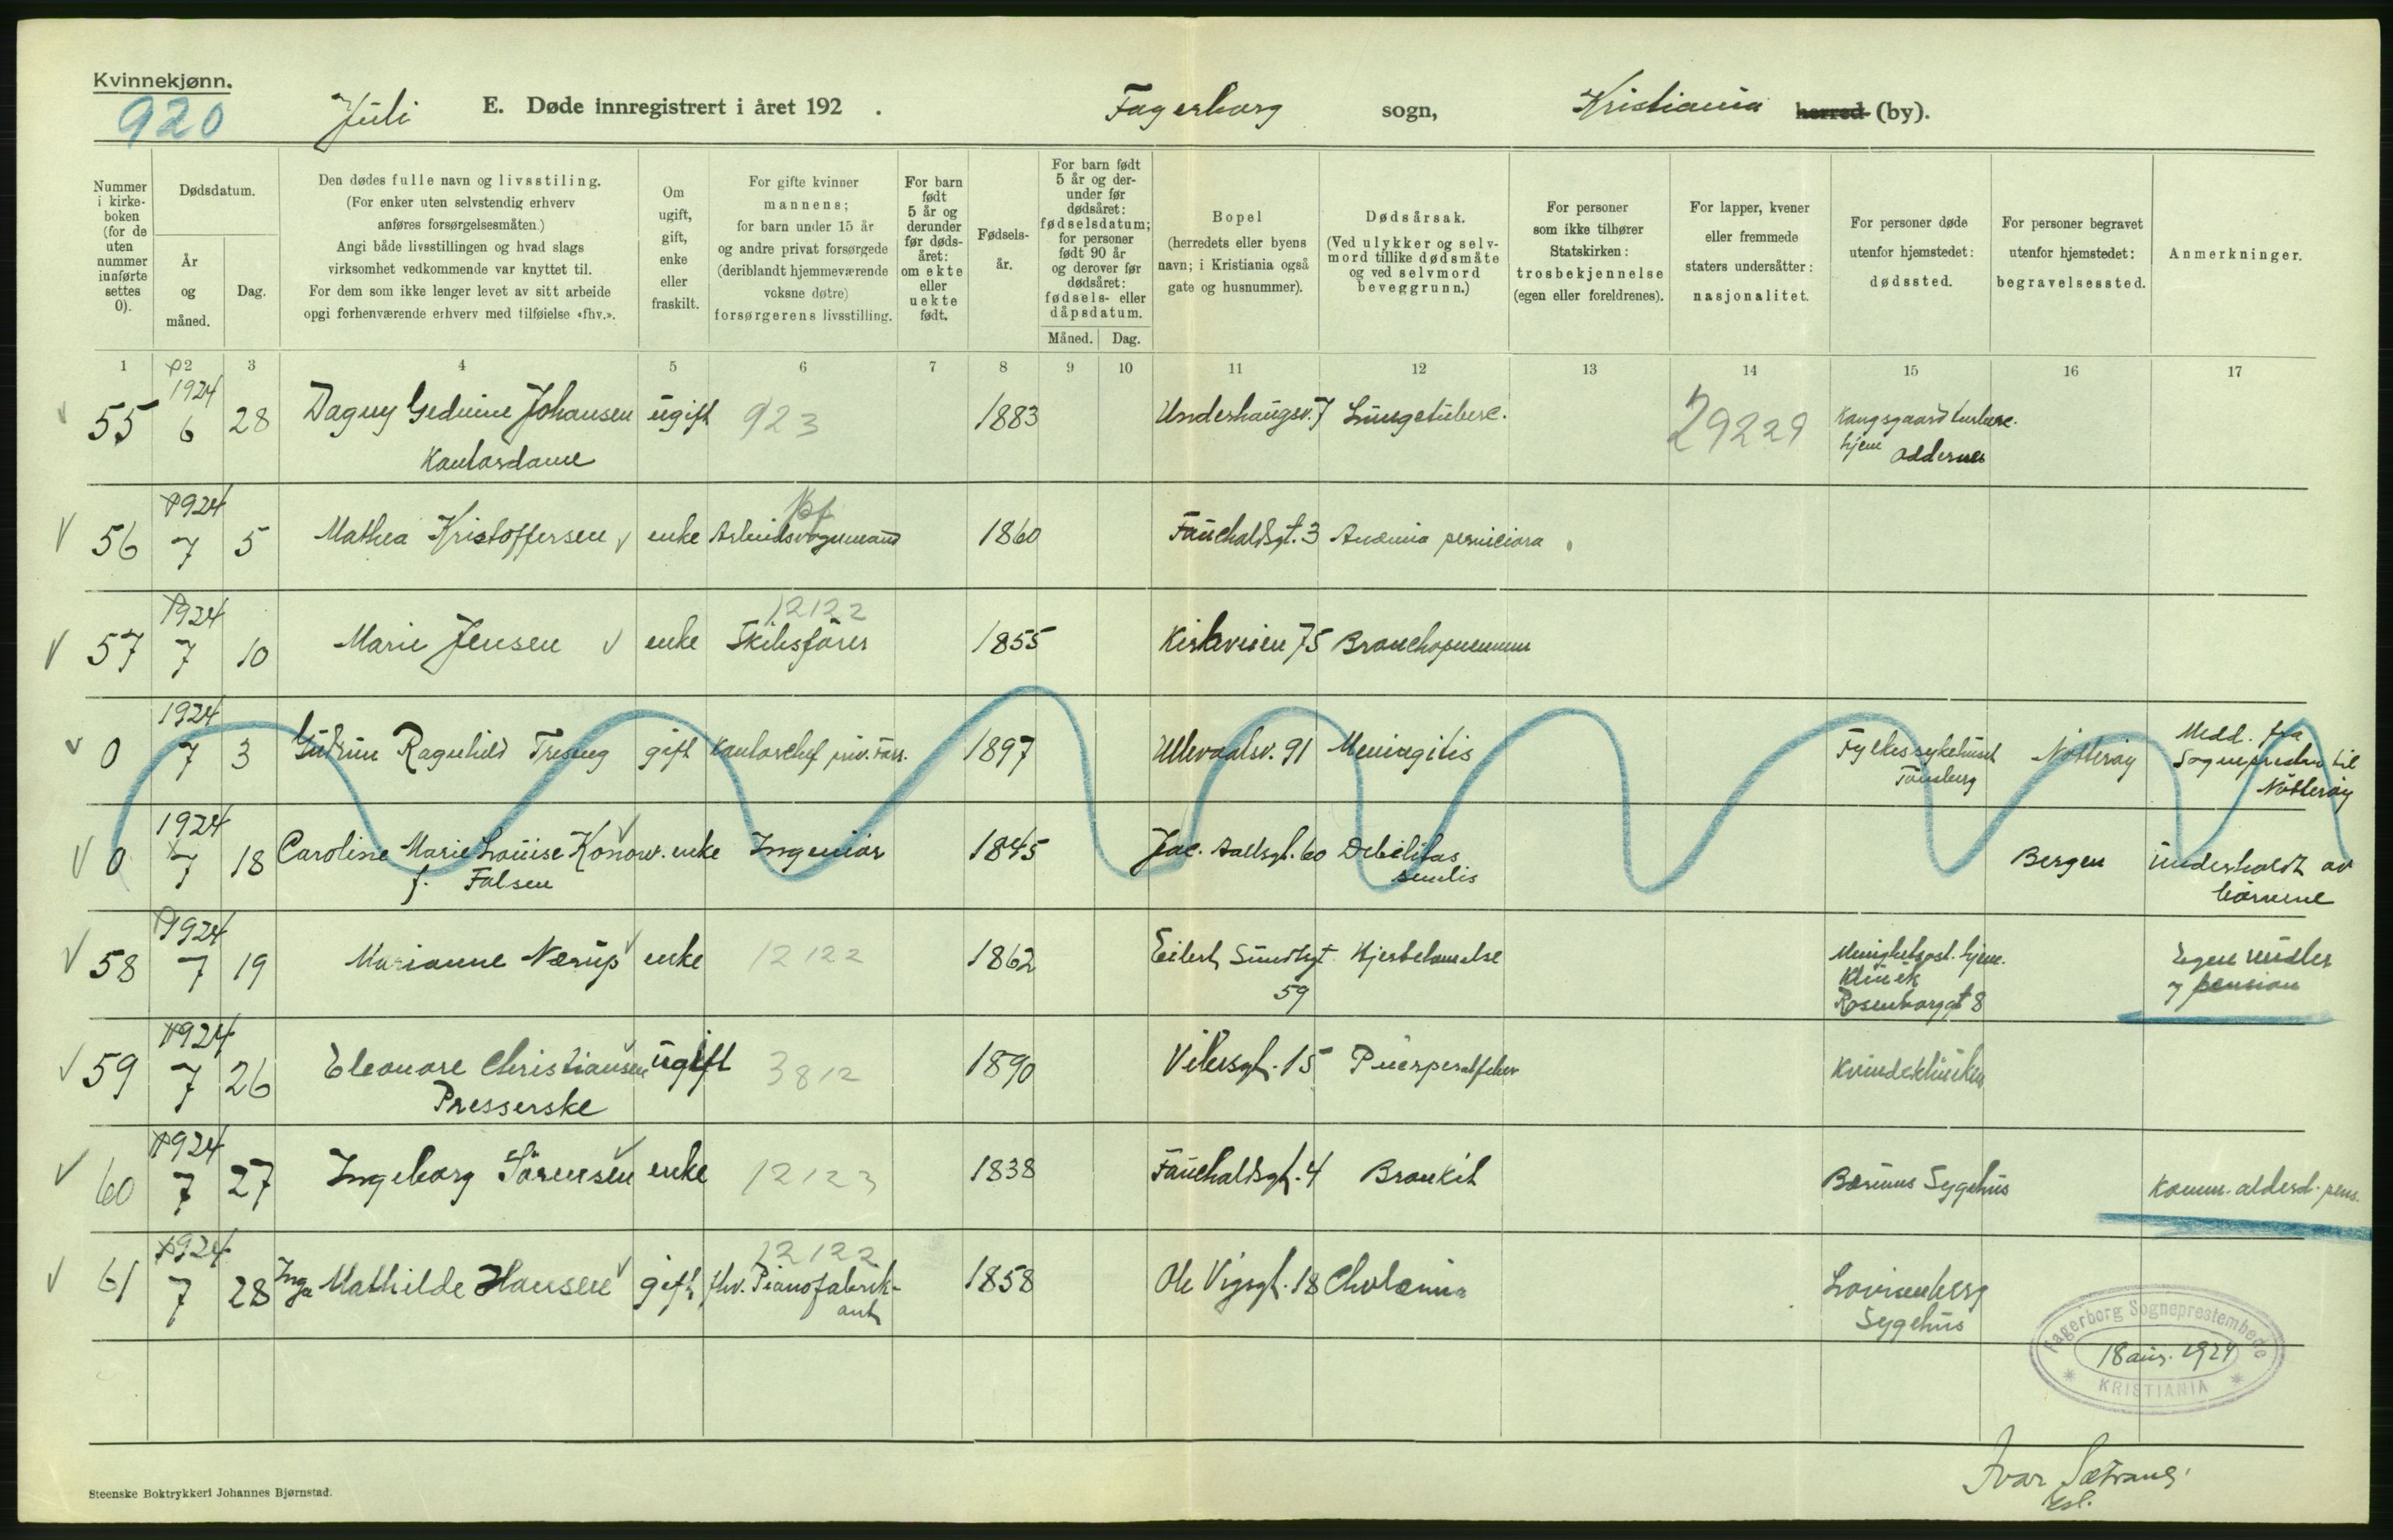 Kvinnekjønn.
920
Juli E. Døde innregistrert i året 192 . Fagerborg sogn, Kristiania herred (by).
Nummer i kirke-boken (for de uten nummer innførte settes 0).
Dødsdatum.
År og måned.
Dag.
Den dødes fulle navn og livsstiling.
(For enker uten selvstendig erhverv
anføres forsørgelsesmåten.)
Angi både livsstillingen og hvad slags
virksomhet vedkommende var knyttet til.
For dem som ikke lenger levet av sitt arbeide
opgi forhenværende erhverv med tilføielse «fhv.».
Om ugift, gift, enke eller fraskilt.
For gifte kvinner
mannens;
for barn under 15 år
og andre privat forsørgede
(deriblandt hjemmeværende
voksne døtre)
forsørgerens livsstilling.
For barn født 5 år og derunder før døds-året: om ekte eller uekte født.
Fødsels-år.
For barn født 5 år og der-under før dødsåret: fødselsdatum; for personer født 90 år og derover før dødsåret: fødsels- eller dåpsdatum.
Måned. Dag.
Bopel
(herredets eller byens
navn; i Kristiania også
gate og husnummer).
Dødsårsak.
(Ved ulykker og selv-
mord tillike dødsmåte
og ved selvmord
beveggrunn.)
For personer
som ikke tilhører
Statskirken:
trosbekjennelse
(egen eller foreldrenes).
For lapper, kvener
eller fremmede
staters undersåtter:
nasjonalitet.
For personer døde
utenfor hjemstedet:
dødssted.
For personer begravet
utenfor hjemstedet:
begravelsessted.
Anmerkninger.
1 2 3 4 5 6 7 8 9 10 11 12 13 14 15 16 17
55 1924 6 28 Dagny Johansen ugift 923 1883 Underhaugsv. 7 Lungetuberc. 29229
Kontordame Oddernes
56 1924 7 5 Mathea Kristoffersen enke 1860 Fauchaldsgt. 3 Anæmia perniciosa
57 1924 7 10 Marie Jensen enke Skibsfører 12122 1855 Kirkeveien 75 Bronchopneumon
0 1924 7 3 Gudrun Ragnhild gift Kontorchef 1897 Ullevaalsv. 91 Meningitis Fylkessykehuset Tønsberg Nøtterøy Medd. fra Sognepresten til Nøtterøy
0 1924 7 18 Caroline Marie Louise Konow. enke Ingeniør 1845 Jac. Aallsgt. 60 Debilitas senilis Bergen Underholdt av børnene
f. Falsen
58 1924 7 19 Marianne Nærup enke 12122 1862 Eilert Sundtsgt 59 Hjertelammelse Klinik Rosenborggt 8 Egne midler og pension
59 1924 7 26 Eleonore Christiansen ugift 3812 1890 Vibesgt. 15 Puerperalfeber Kvindeklinikken
Presserske
60 1924 7 27 Ingeborg Sørensen enke 12123 1838 Fauchaldsgt. 4 Bronkit Bærums Sygehus Komm. alderd. pens.
61 1924 7 28 Inga Mathilde Hansen gift fhv. Pianofabrik-ant 12122 1858 Ole Vigsgt. 18 Cholæmia Lovisenberg Sygehus
Fagerborg Sogneprestembede
18 aug. 1924
KRISTIANIA
Ivar Sætrang
Steenske Boktrykkeri Johannes Bjørnstad.